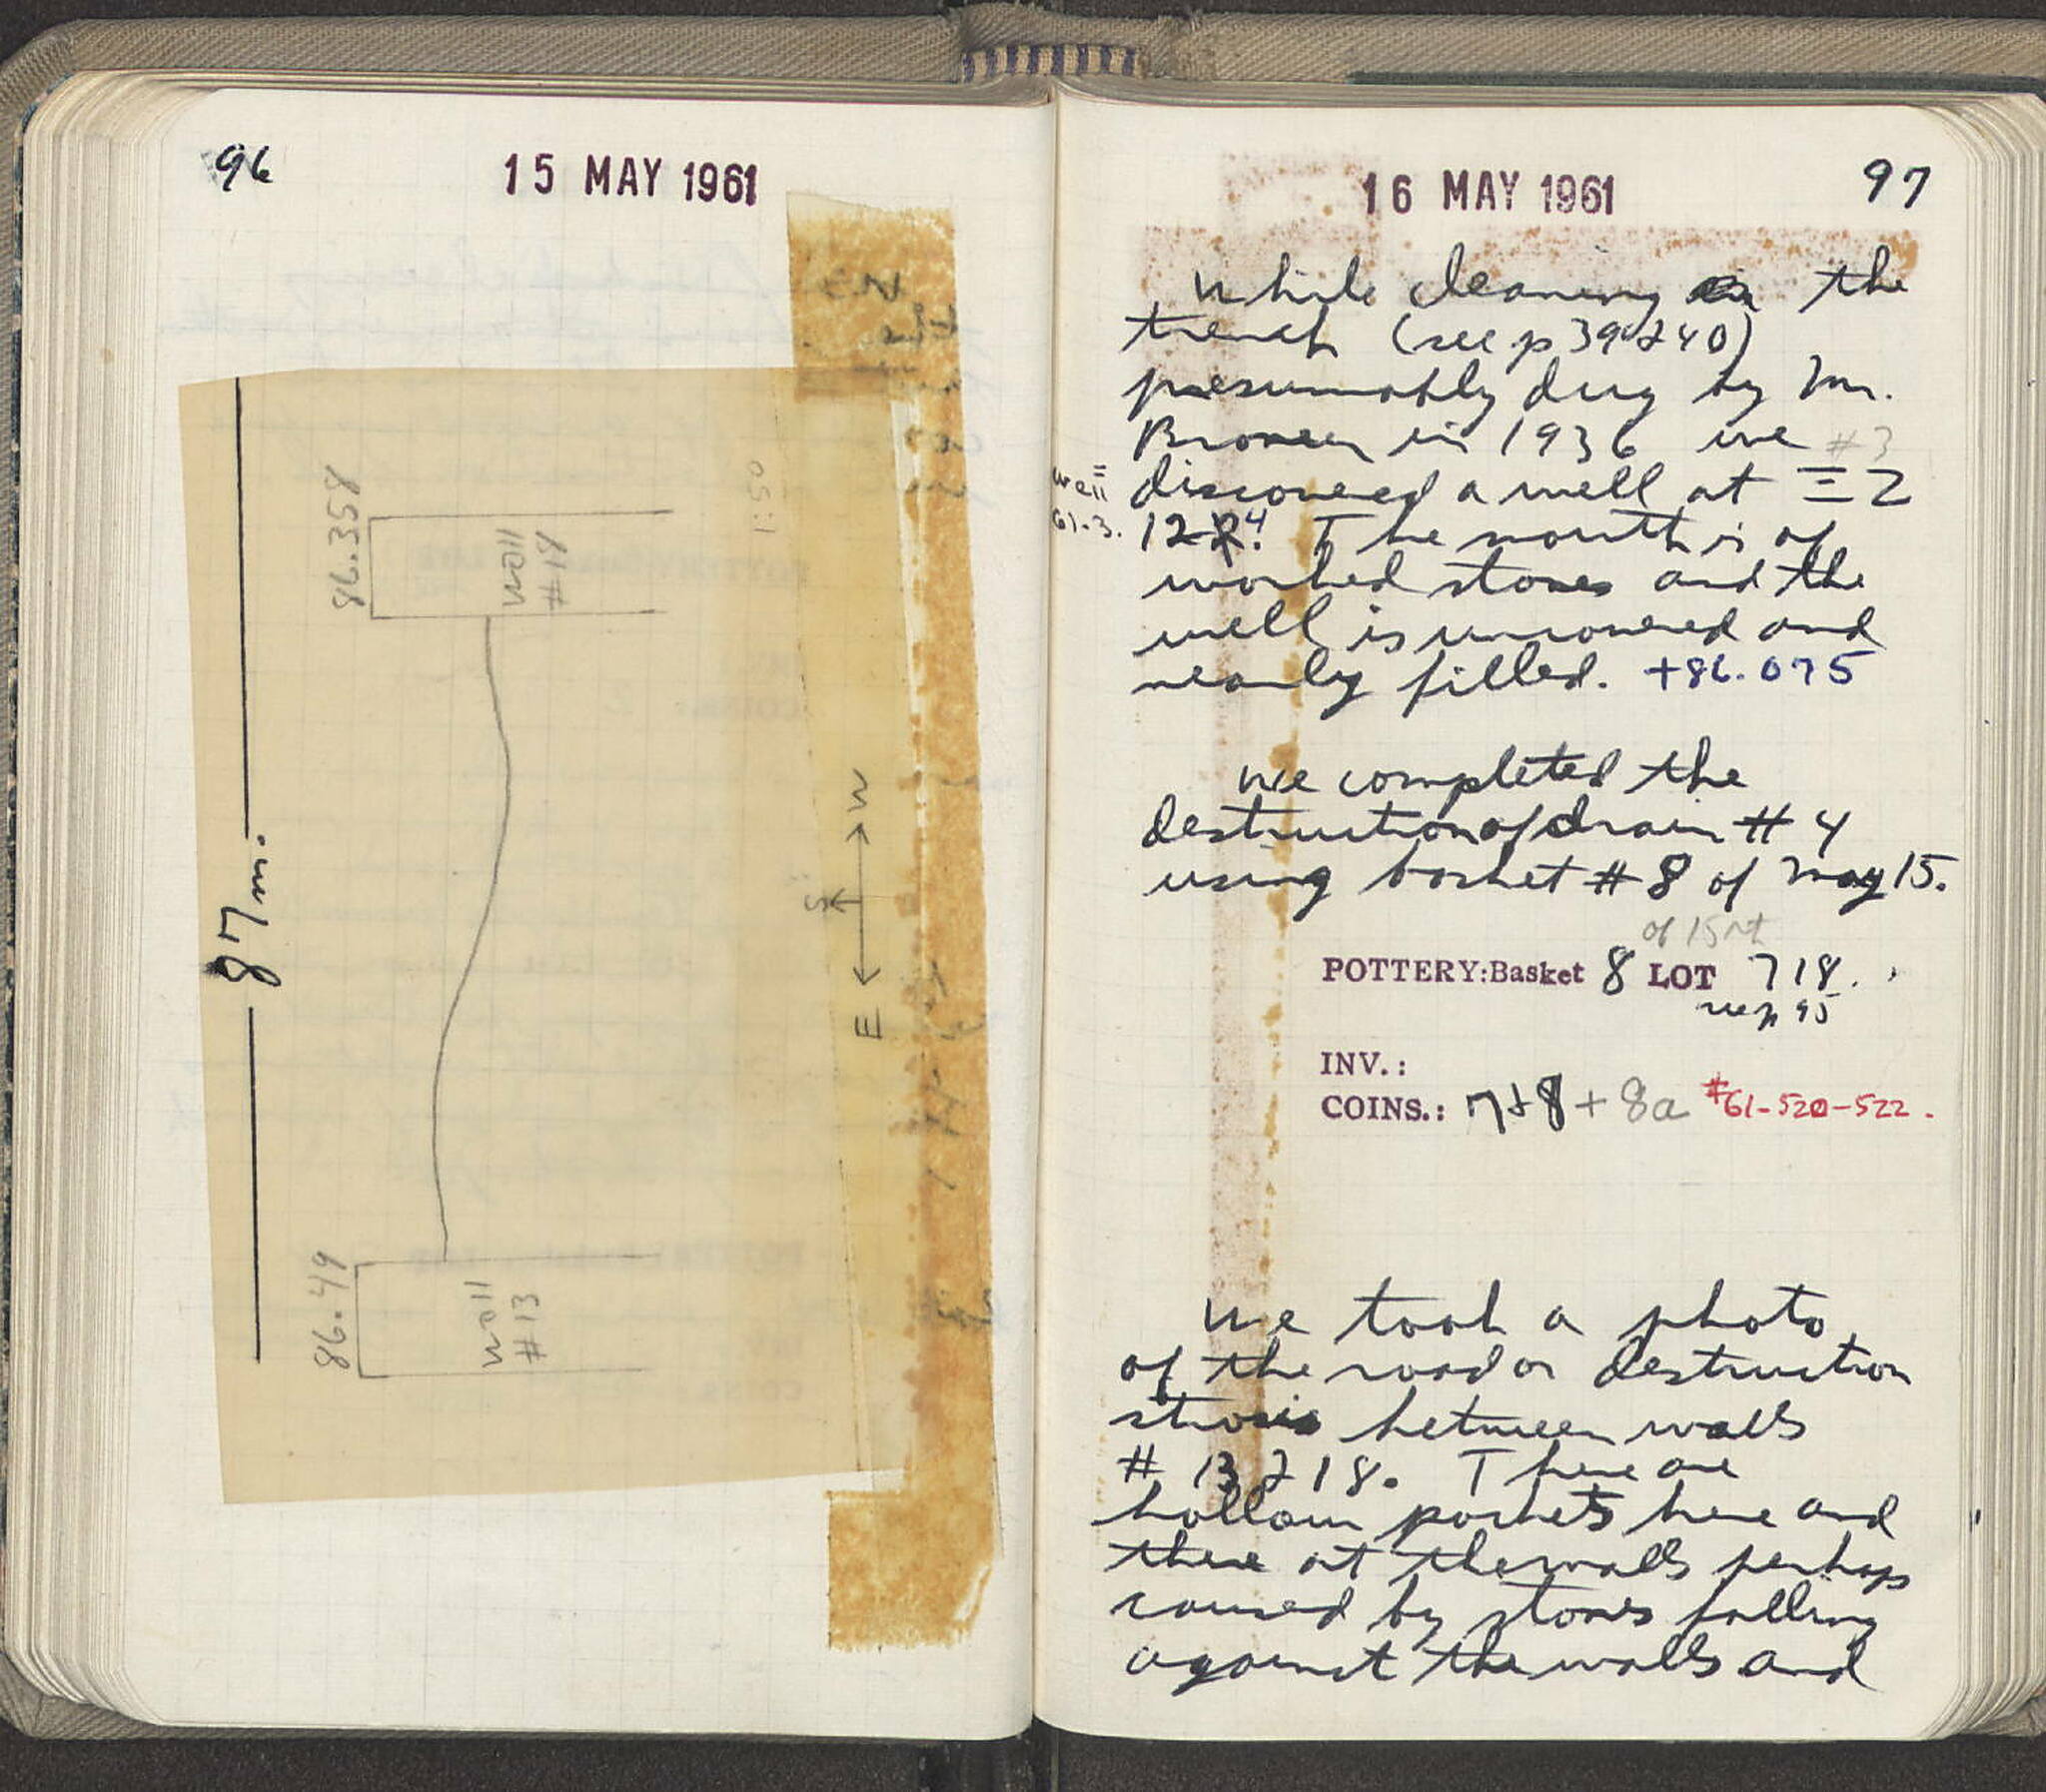 96
15 MAY 1961
87 m.
86.358
wall
#18
1:50
W
S
E
86.49
wall
#13
16 MAY 1961
97
While cleaning the
trench (see p 39 & 40)
presumably dug by Mr.
Broneer in 1936 we #3
discovered a well at Ξ 2
well =
61-3.
12-4! The mouth is of
worked stones and the
well is uncovered and
nearly filled. +86.075
We completed the
destruction of drain #4
using basket #8 of May 15.
of 15th
POTTERY:Basket 8 LOT 718.
see p 95
INV.:
COINS.: 7+8 + 8a #61-520-522.
We took a photo
of the road or destruction
strosis between walls
# 13 & 18. There are
hollow pockets here and
there at the walls perhaps
caused by stones falling
against the walls and